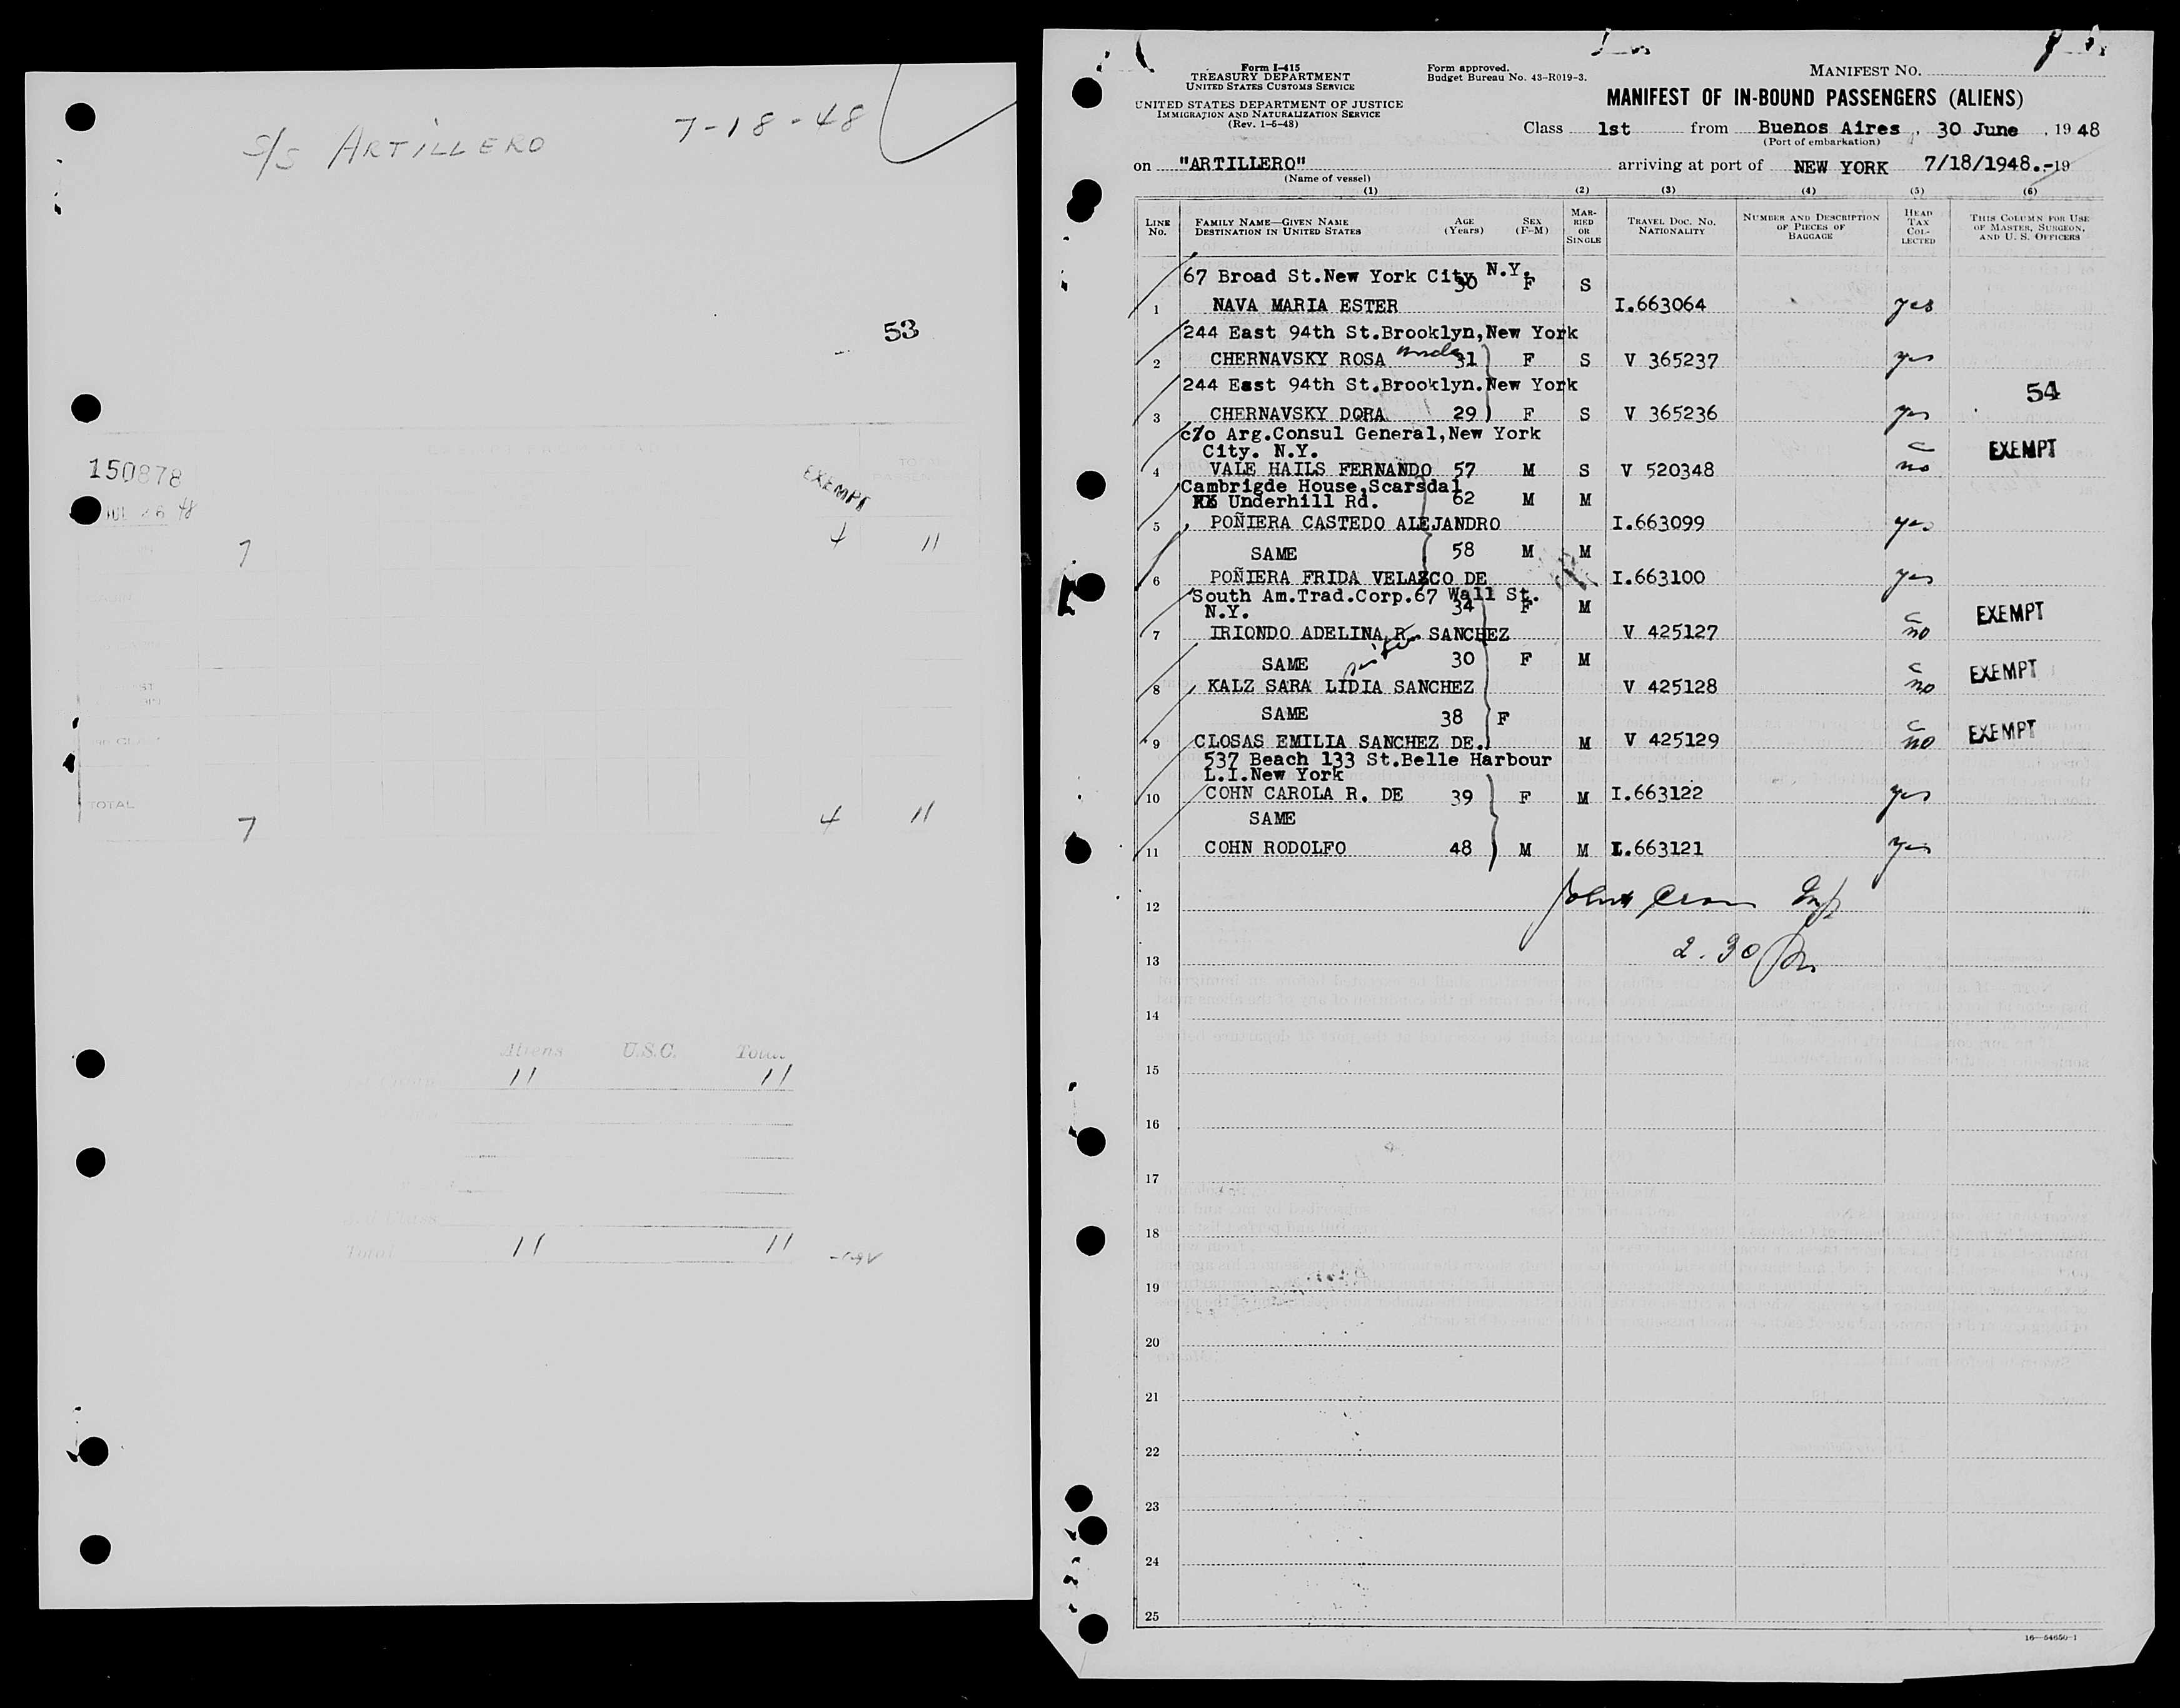 S/S ARTILLERO 7-18-48
53
150878
JUL 26 48
EXEMPT
7 4 11
TOTAL 7 4 11
Aliens U.S.C. Total
11 11
3rd Class
Total 11 11
Form I-415
TREASURY DEPARTMENT
UNITED STATES CUSTOMS SERVICE
UNITED STATES DEPARTMENT OF JUSTICE
IMMIGRATION AND NATURALIZATION SERVICE
(Rev. 1-6-48)
Form approved.
Budget Bureau No. 43-R019-3.
MANIFEST NO.
MANIFEST OF IN-BOUND PASSENGERS (ALIENS)
Class 1st from Buenos Aires, 30 June, 1948
(Port of embarkation)
on "ARTILLERO" arriving at port of NEW YORK 7/18/1948.-19
(Name of vessel)
(1) (2) (3) (4) (5) (6)
LINE No. FAMILY NAME—GIVEN NAME DESTINATION IN UNITED STATES AGE (Years) SEX (F-M) MARRIED OR SINGLE TRAVEL DOC. NO. NATIONALITY NUMBER AND DESCRIPTION OF PIECES OF BAGGAGE HEAD TAX COLLECTED THIS COLUMN FOR USE OF MASTER, SURGEON, AND U. S. OFFICERS
67 Broad St.New York City N.Y. 30 F S
1 NAVA MARIA ESTER I.663064 yes
244 East 94th St.Brooklyn,New York
2 CHERNAVSKY ROSA 31 F S V 365237 yes
244 East 94th St.Brooklyn.New York
54
3 CHERNAVSKY DORA 29 F S V 365236 yes
c/o Arg.Consul General,New York
City. N.Y.
4 VALE HAILS FERNANDO 57 M S V 520348 c no EXEMPT
Cambrigde House,Scarsdal
XX Underhill Rd. 62 M M
5 POÑIERA CASTEDO ALEJANDRO I.663099 yes
SAME 58 M M
6 POÑIERA FRIDA VELAZCO DE I.663100 yes
South Am.Trad.Corp.67 Wall St.
N.Y. 34 F M
7 IRIONDO ADELINA R. SANCHEZ V 425127 c no EXEMPT
SAME 30 F M
8 KALZ SARA LIDIA SANCHEZ V 425128 c no EXEMPT
SAME 38 F
9 CLOSAS EMILIA SANCHEZ DE. M V 425129 c no EXEMPT
537 Beach 133 St.Belle Harbour
L.I.New York
10 COHN CAROLA R. DE 39 F M I.663122 yes
SAME
11 COHN RODOLFO 48 M M I.663121 yes
12
2.30 Pm
13
14
15
16
17
18
19
20
21
22
23
24
25
16—54650-1